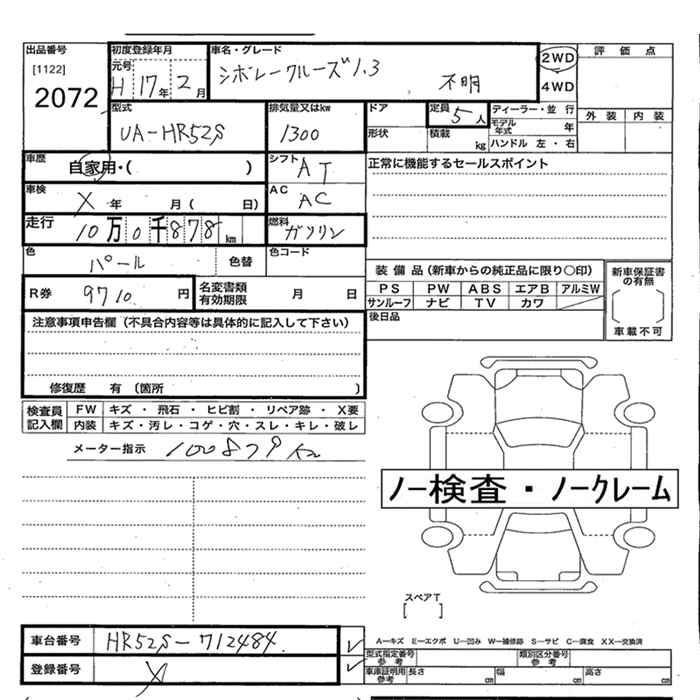 出品番号
[1122]
2072
初度登録年月
元号
H 17年 2月
車名・グレード
シボレークルーズ1.3
不明
2WD
4WD
評価点
外装 内装
型式
UA-HR52S
排気量又はkw
1300
ドア
形状
定員
5人
積載
kg
ディーラー・並行
モデル年式 年
ハンドル 左・右
車歴
自家用・( )
シフト
AT
正常に機能するセールスポイント
車検
X 年 月( 日)
AC
AC
走行
10万0千878km
燃料
ガソリン
色
パール
色替
色コード
装備品(新車からの純正品に限り〇印)
PS PW ABS エアB アルミW
サンルーフ ナビ TV カワ
新車保証書の有無
車載不可
R券
9710円
名変書類有効期限 月 日
後日品
注意事項申告欄(不具合内容等は具体的に記入して下さい)
修復歴 有(箇所 )
検査員記入欄
FW キズ・飛石・ヒビ割・リペア跡・X要
内装 キズ・汚レ・コゲ・穴・スレ・キレ・破レ
メーター指示 100879km
ノー検査・ノークレーム
スペアT
[ ]
車台番号
HR52S-712484
登録番号
X
A-キズ E-エクボ U-凹み W-補修跡 S-サビ C-腐食 XX-交換済
型式指定番号参考
類別区分番号参考
車庫証明用参考 長さ cm 幅 cm 高さ cm